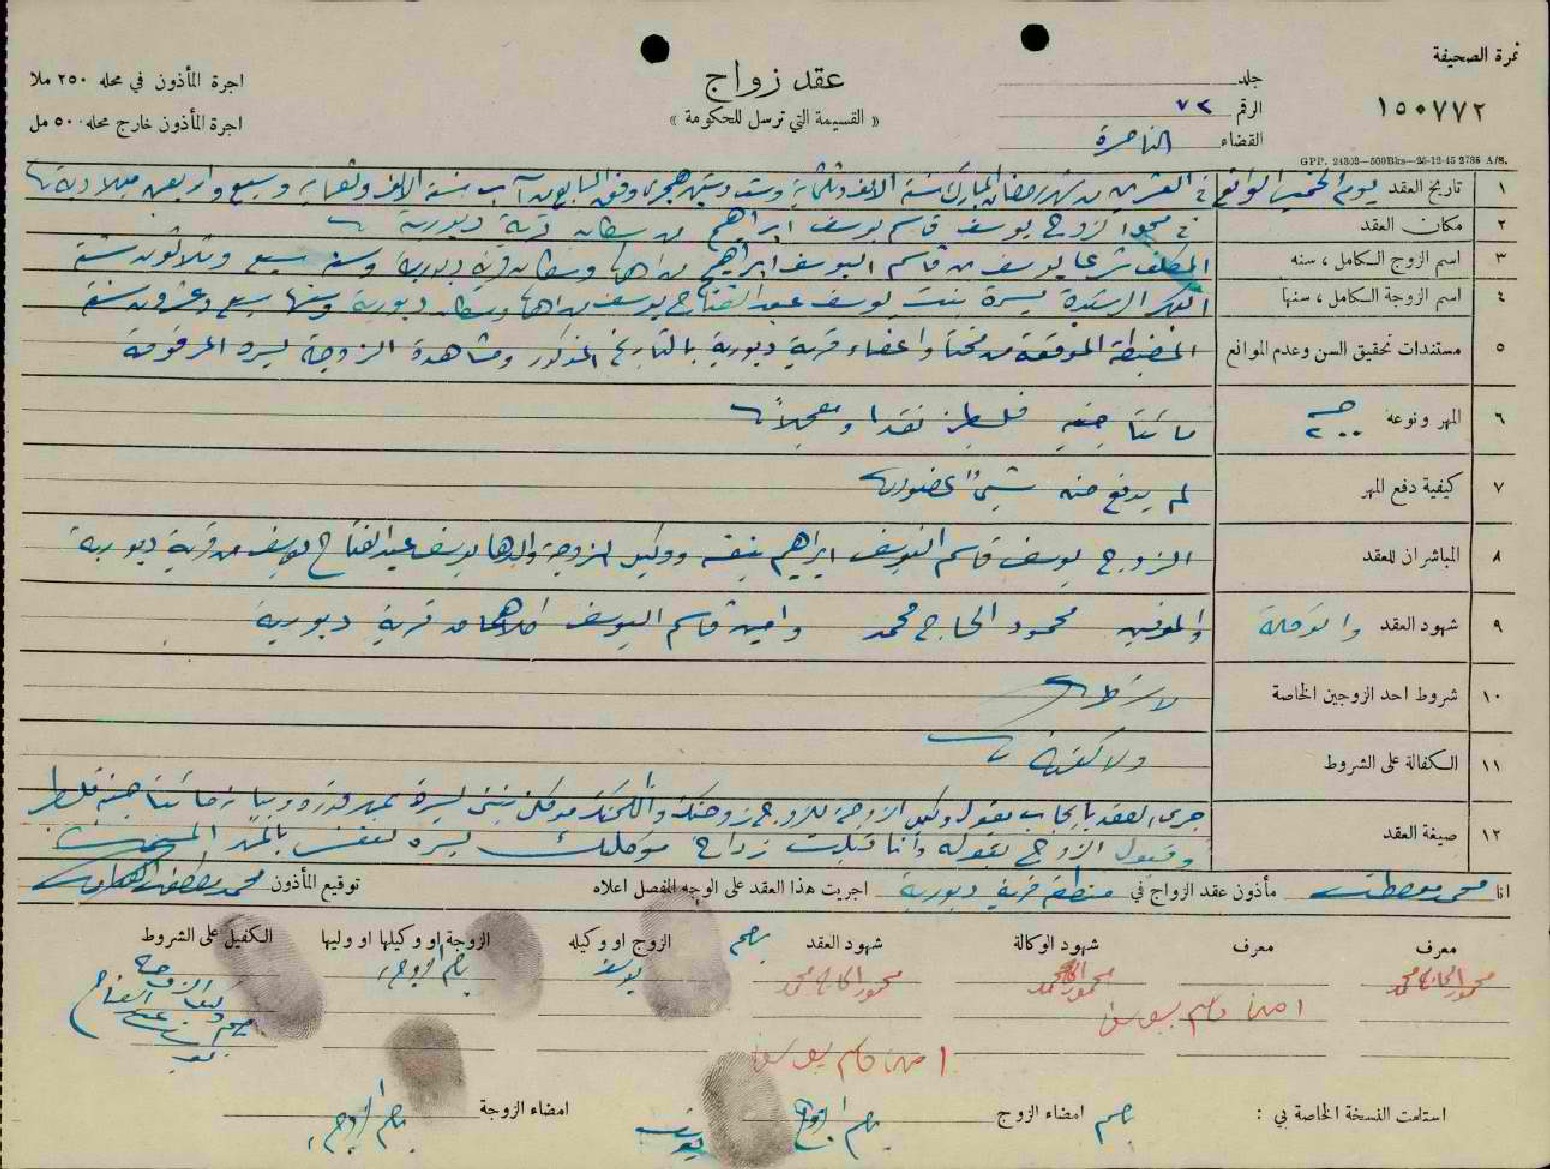 نمرة الصحيفة
١٥٠٧٧٢
جلد
الرقم ٧٢
القضاء الناصرة
عقد زواج
« القسيمة التي ترسل للحكومة »
اجرة المأذون في محله ٢٥٠ ملا
اجرة المأذون خارج محله ٥٠٠ مل
GPP. 24303—500Bks—26-12-45 2736 A/S.
١ تاريخ العقد يوم الخميس الواقع في العشرين من شهر رمضان المبارك سنة الالف وثلثماية وست وستين هجري وفق السابع من آب سنة الالف وتسعماية وسبع واربعين ميلادية
٢ مكان العقد في محل الزوج يوسف قاسم يوسف ابراهيم من سكان قرية دبورية
٣ اسم الزوج الكامل ، سنه المكلف شرعا يوسف بن قاسم اليوسف ابراهيم من اهالي وسكان قرية دبورية وسنه سبع وثلاثون سنة
٤ اسم الزوجة الكامل ، سنها البكر الرشيدة يسرة بنت يوسف عبد الفتاح يوسف من اهالي وسكان دبورية وسنها سبع وعشرون سنة
٥ مستندات تحقيق السن وعدم الموانع المضبطة الموقعة من مختار واعضاء قرية دبورية بالتاريخ المذكور ومشاهدة الزوجة يسره المرقومة
٦ المهر ونوعه ٢٠٠ جـ مائتا جنيه فلسطيني نقدا ومعجلاً
٧ كيفية دفع المهر لم يدفع منه شيءً
٨ المباشران للعقد الزوج يوسف قاسم اليوسف ابراهيم بنفسه ووكيل الزوجة والدها يوسف عبد الفتاح يوسف من قرية دبورية
٩ شهود العقد والوكالة محمود الحاج محمد وامين قاسم اليوسف كلاهما من قرية دبورية
١٠ شروط احد الزوجين الخاصة لا شرط
١١ الكفالة على الشروط ولا كفالة
١٢ صيغة العقد جرى العقد بايجاب بقول وكيل الزوجة للزوج زوجتك وانكحتك موكلتي بنتي يسرة بمهر قدره مائتا جنيه فلسطيني
وقبول الزوج بقوله وانا قبلت زواج موكلتك يسره لنفسي بالمهر
انا محمد مصطفى مأذون عقد الزواج في منطقة قرية دبورية اجريت هذا العقد على الوجه المفصل اعلاه توقيع المأذون محمد مصطفى
معرف معرف شهود الوكالة شهود العقد الزوج او وكيله الزوجة او وكيلها او وليها الكفيل على الشروط
محمود الحاج محمد محمود الحاج محمد محمود الحاج محمد بصم يوسف بصم الزوجة
امين قاسم يوسف
امين قاسم يوسف
استلمت النسخة الخاصة بي : بصم امضاء الزوج بصم الزوج يوسف امضاء الزوجة بصم الزوجة